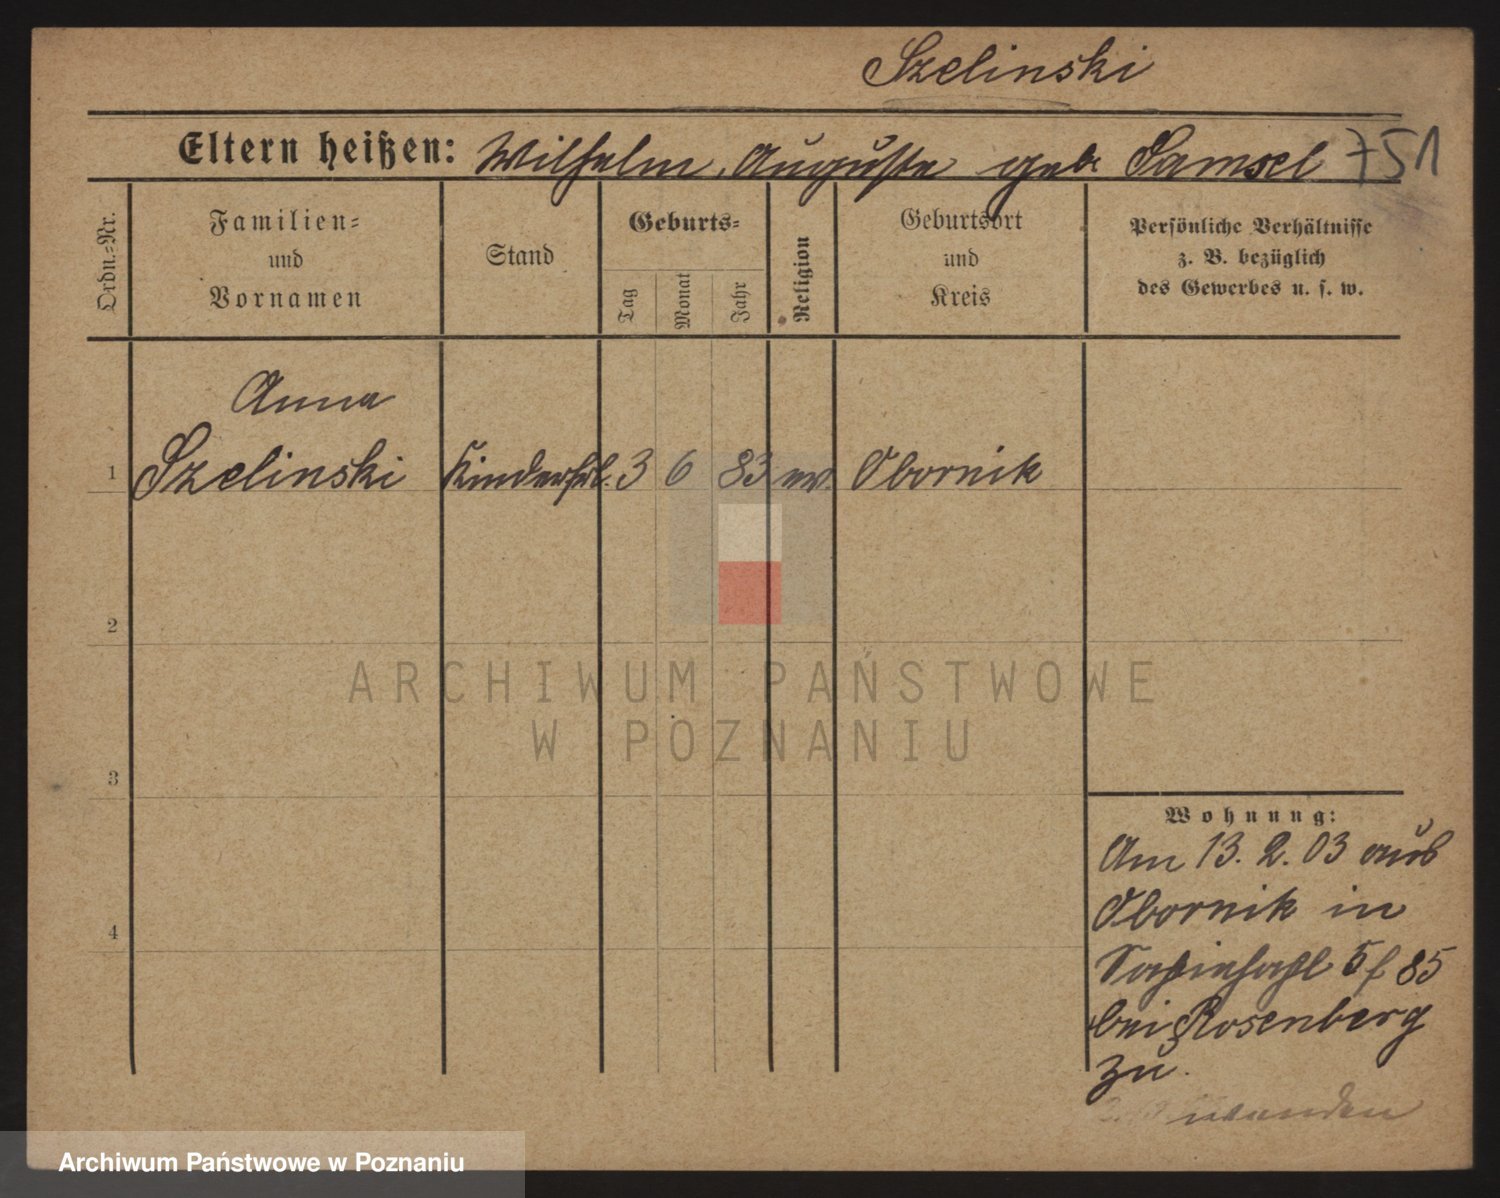 Szelinski
Eltern heißen: Wilhelm, Auguste geb. Samsel 751
Ordn.-Nr.
Familien-
und
Vornamen
Stand
Geburts-
Tag
Monat
Jahr
Religion
Geburtsort
und
Kreis
Persönliche Verhältnisse
z. B. bezüglich
des Gewerbes u. s. w.
Anna
1 Szelinski Kinderfrl. 3 6 83 ev. Obornik
2
3
4
ARCHIWUM PAŃSTWOWE
W POZNANIU
Wohnung:
Am 13. 2. 03 aus
Obornik in
85
bei Rosenberg
zu.
Archiwum Państwowe w Poznaniu